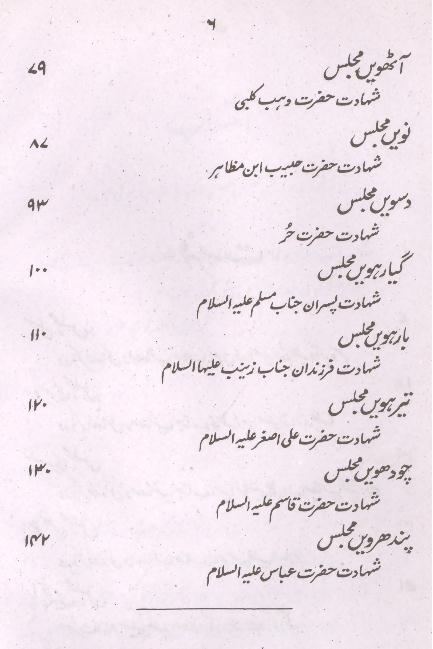 ۶
آٹھویں مجلس ۷۹
شہادت حضرت وہب کلبی
نویں مجلس ۸۷
شہادت حضرت حبیب ابن مظاہر
دسویں مجلس ۹۳
شہادت حضرت حُر
گیارہویں مجلس ۱۰۰
شہادت پسران جناب مسلم علیہ السلام
بارہویں مجلس ۱۱۰
شہادت فرزندان جناب زینب علیہا السلام
تیرہویں مجلس ۱۲۰
شہادت حضرت علی اصغر علیہ السلام
چودھویں مجلس ۱۳۰
شہادت حضرت قاسم علیہ السلام
پندھرویں مجلس ۱۴۲
شہادت حضرت عباس علیہ السلام